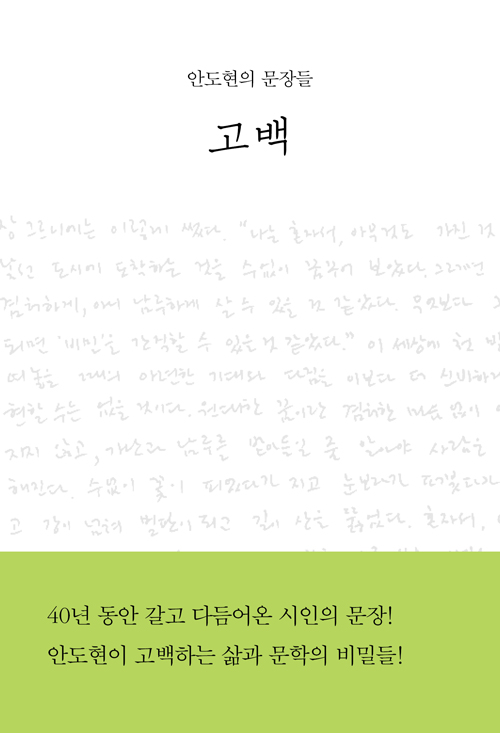 안도현의 문장들
고백
장 그르니에는 이렇게 썼다. "나는 혼자서, 아무것도 가진 것
낯선 도시에 도착하는 것을 수없이 꿈꾸어 보았다. 그러면
겸허하게, 아니 남루하게 살 수 있을 것 같았다. 무엇보다 그
되면 '비밀'을 간직할 수 있을 것 같았다." 이 세상에 첫 발
떼놓을 때의 아련한 기대와 다짐을 이보다 더 신비하게
현할 수는 없을 것이다. 원대한 꿈이란 겸허한 마음 없이
지지 않고, 가난과 남루를 받아들일 줄 알아야 사람을
해진다. 수없이 꽃이 피었다가 지고 눈보라가
고 강이 넘쳐 벌판이 되고 길이 산을 뚫었다. 혼자서,
40년 동안 갈고 다듬어온 시인의 문장!
안도현이 고백하는 삶과 문학의 비밀들!